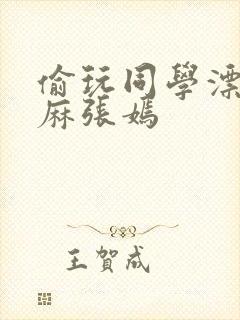 偷玩同學漂
麻張嫣
王賀成